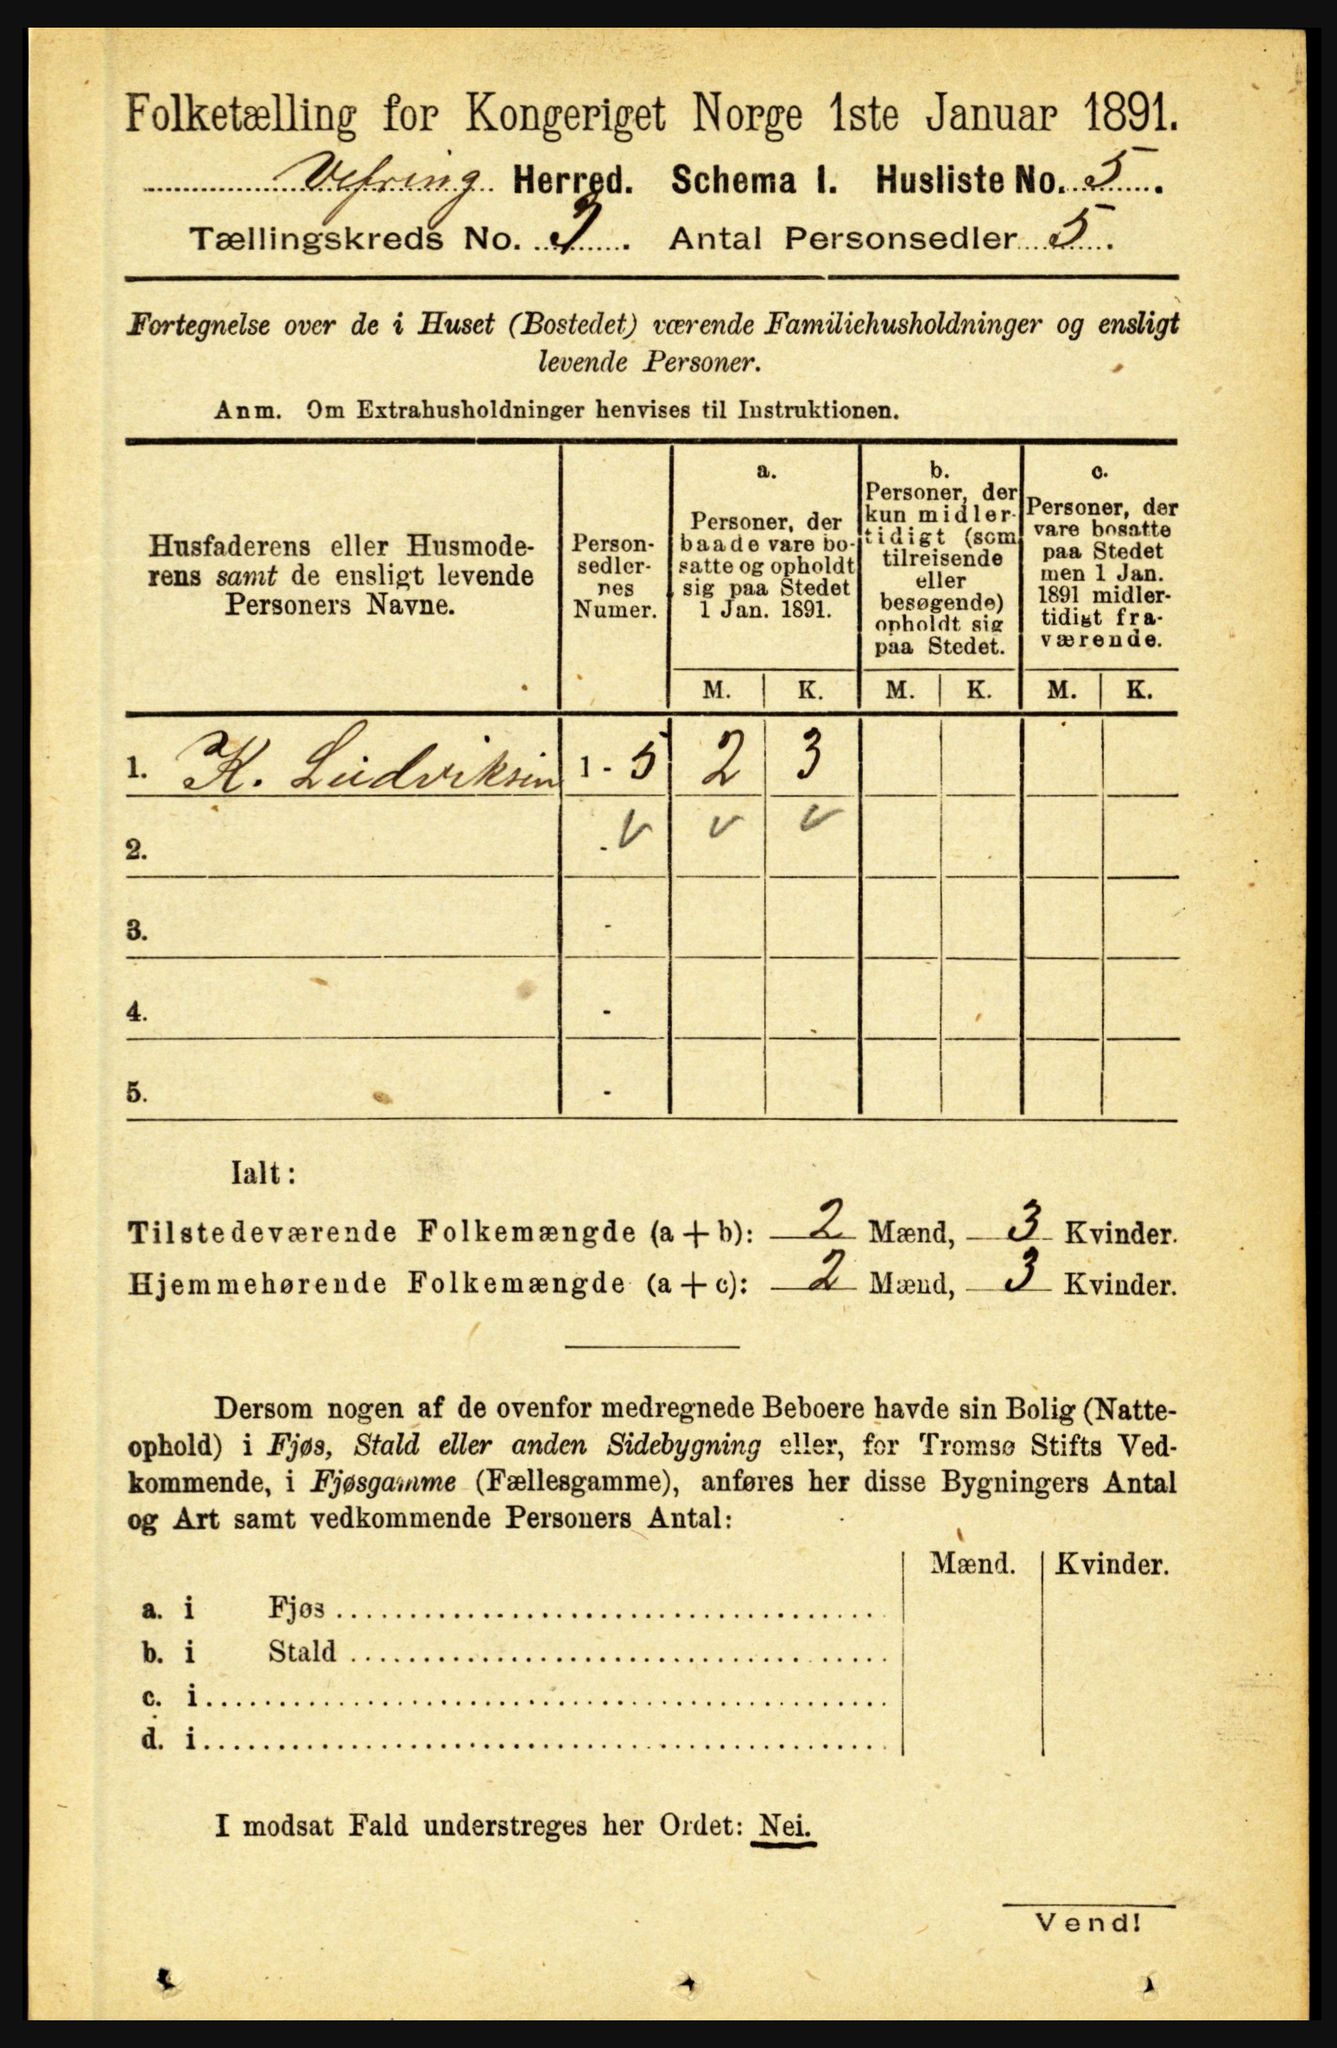 Folketælling for Kongeriget Norge 1ste Januar 1891.
Vefring Herred. Schema I. Husliste No. 5.
Tællingskreds No. 3. Antal Personsedler 5.
Fortegnelse over de i Huset (Bostedet) værende Familiehusholdninger og ensligt
levende Personer.
Anm. Om Extrahusholdninger henvises til Instruktionen.
Husfaderens eller Husmode-
rens samt de ensligt levende
Personers Navne.
Person-
sedler-
nes
Numer.
a.
Personer, der
baade vare bo-
satte og opholdt
sig paa Stedet
1 Jan. 1891.
b.
Personer, der
kun midler-
tidigt (som
tilreisende
eller
besøgende)
opholdt sig
paa Stedet.
c.
Personer, der
vare bosatte
paa Stedet
men 1 Jan.
1891 midler-
tidigt fra-
værende.
M. K. M. K. M. K.
1. K. Ludviksen 1 - 5 2 3
2. - v v v
3. -
4. -
5. -
Ialt:
Tilstedeværende Folkemængde (a + b): 2 Mænd, 3 Kvinder.
Hjemmehørende Folkemængde (a + c): 2 Mænd, 3 Kvinder.
Dersom nogen af de ovenfor medregnede Beboere havde sin Bolig (Natte-
ophold) i Fjøs, Stald eller anden Sidebygning eller, for Tromsø Stifts Ved-
kommende, i Fjøsgamme (Fællesgamme), anføres her disse Bygningers Antal
og Art samt vedkommende Personers Antal:
Mænd. Kvinder.
a. i Fjøs
b. i Stald
c. i
d. i
I modsat Fald understreges her Ordet: Nei.
Vend!